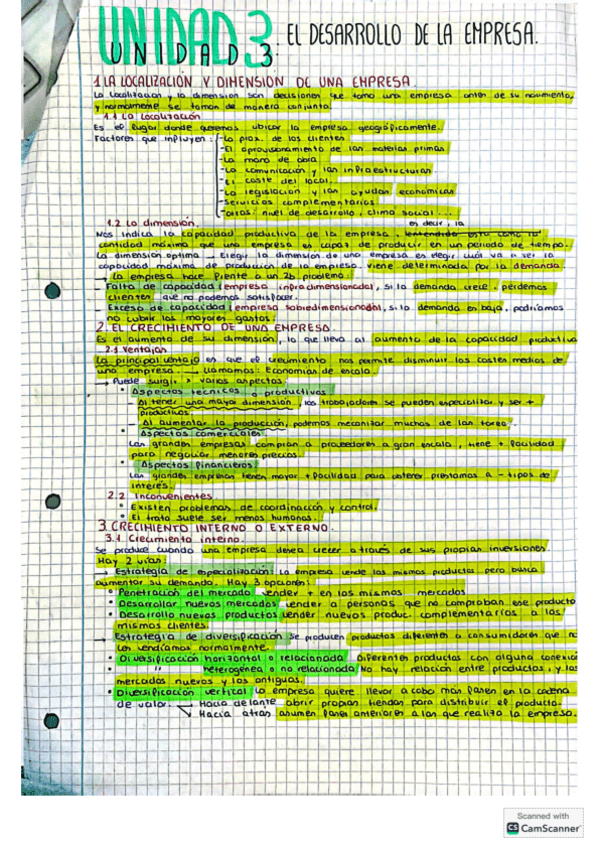 UNIDAD 3: EL DESARROLLO DE LA EMPRESA.
UNIDAD 3:
1. LA LOCALIZACIÓN Y DIMENSIÓN DE UNA EMPRESA.
La Localización y la dimensión son decisiones que toma una empresa antes de su nacimiento,
y normalmente se toman de manera conjunta.
1.1 La Localización
Es el lugar donde queremos ubicar la empresa geográficamente.
Factores que influyen:
-La prox. de los clientes
-El aprovisionamiento de las materias primas
-La mano de obra
-La comunicación y las infraestructuras
-El coste del local.
-La legislación y las ayudas económicas
-Servicios complementarios
-Otros: nivel de desarrollo, clima social...
1.2 La dimensión.
es decir, la
Nos indica la capacidad productiva de la empresa,
cantidad máxima que una empresa es capaz de producir en un periodo de tiempo.
La dimensión óptima → Elegir la dimensión de una empresa es elegir cuál va a ser la
capacidad máxima de producción de la empresa. Viene determinada por la demanda.
→ La empresa hace frente a un 2b problema:
- Falta de capacidad (empresa infradimensionada), si la demanda crece, perdemos
clientes que no podemos satisfacer.
- Exceso de capacidad (empresa sobredimensionada), si la demanda es baja, podríamos
no cubrir los mayores gastos.
2. EL CRECIMIENTO DE UNA EMPRESA.
Es el aumento de su dimensión, lo que lleva al aumento de la capacidad productiva
2.1 Ventajas
La principal ventaja es que el crecimiento nos permite disminuir los costes medios de
una empresa. → Llamamos: Economías de escala.
→ Puede surgir x varios aspectos
• Aspectos técnicos o productivos
- Al tener una mayor dimensión, los trabajadores se pueden especializar y ser +
productivos
- Al aumentar la producción, podemos mecanizar muchas de las tareas.
• Aspectos comerciales
Las grandes empresas compran a proveedores a gran escala, tiene + facilidad
para negociar menores precios.
• Aspectos financieros
Las grandes empresas tienen mayor + facilidad para obtener préstamos a - tipos de
interés.
2.2 Inconvenientes
• Existen problemas de coordinación y control.
• El trato suele ser menos humano.
3. CRECIMIENTO INTERNO O EXTERNO.
3.1 Crecimiento interno.
Se produce cuando una empresa desea crecer a través de sus propias inversiones.
Hay 2 vías:
→ Estrategia de especialización: La empresa vende los mismos productos pero busca
aumentar su demanda. Hay 3 opciones:
• Penetración del mercado vender + en los mismos mercados
• Desarrollar nuevos mercados vender a personas que no compraban ese producto
• Desarrollo nuevos productos vender nuevos produc. complementarios a los
mismos clientes.
→ Estrategia de diversificación Se producen productos diferentes a consumidores que no
les vendíamos normalmente.
• Diversificación horizontal o relacionada Diferentes productos con alguna conexión
• " heterogénea o no relacionada No hay relación entre productos, y los
mercados nuevos y los antiguos.
• Diversificación vertical La empresa quiere llevar a cabo más fases en la cadena
de valor. → Hacia delante abrir propias tiendas para distribuir el producto.
↘ Hacia atrás asumen fases anteriores a las que realiza la empresa.
Scanned with
CS CamScanner